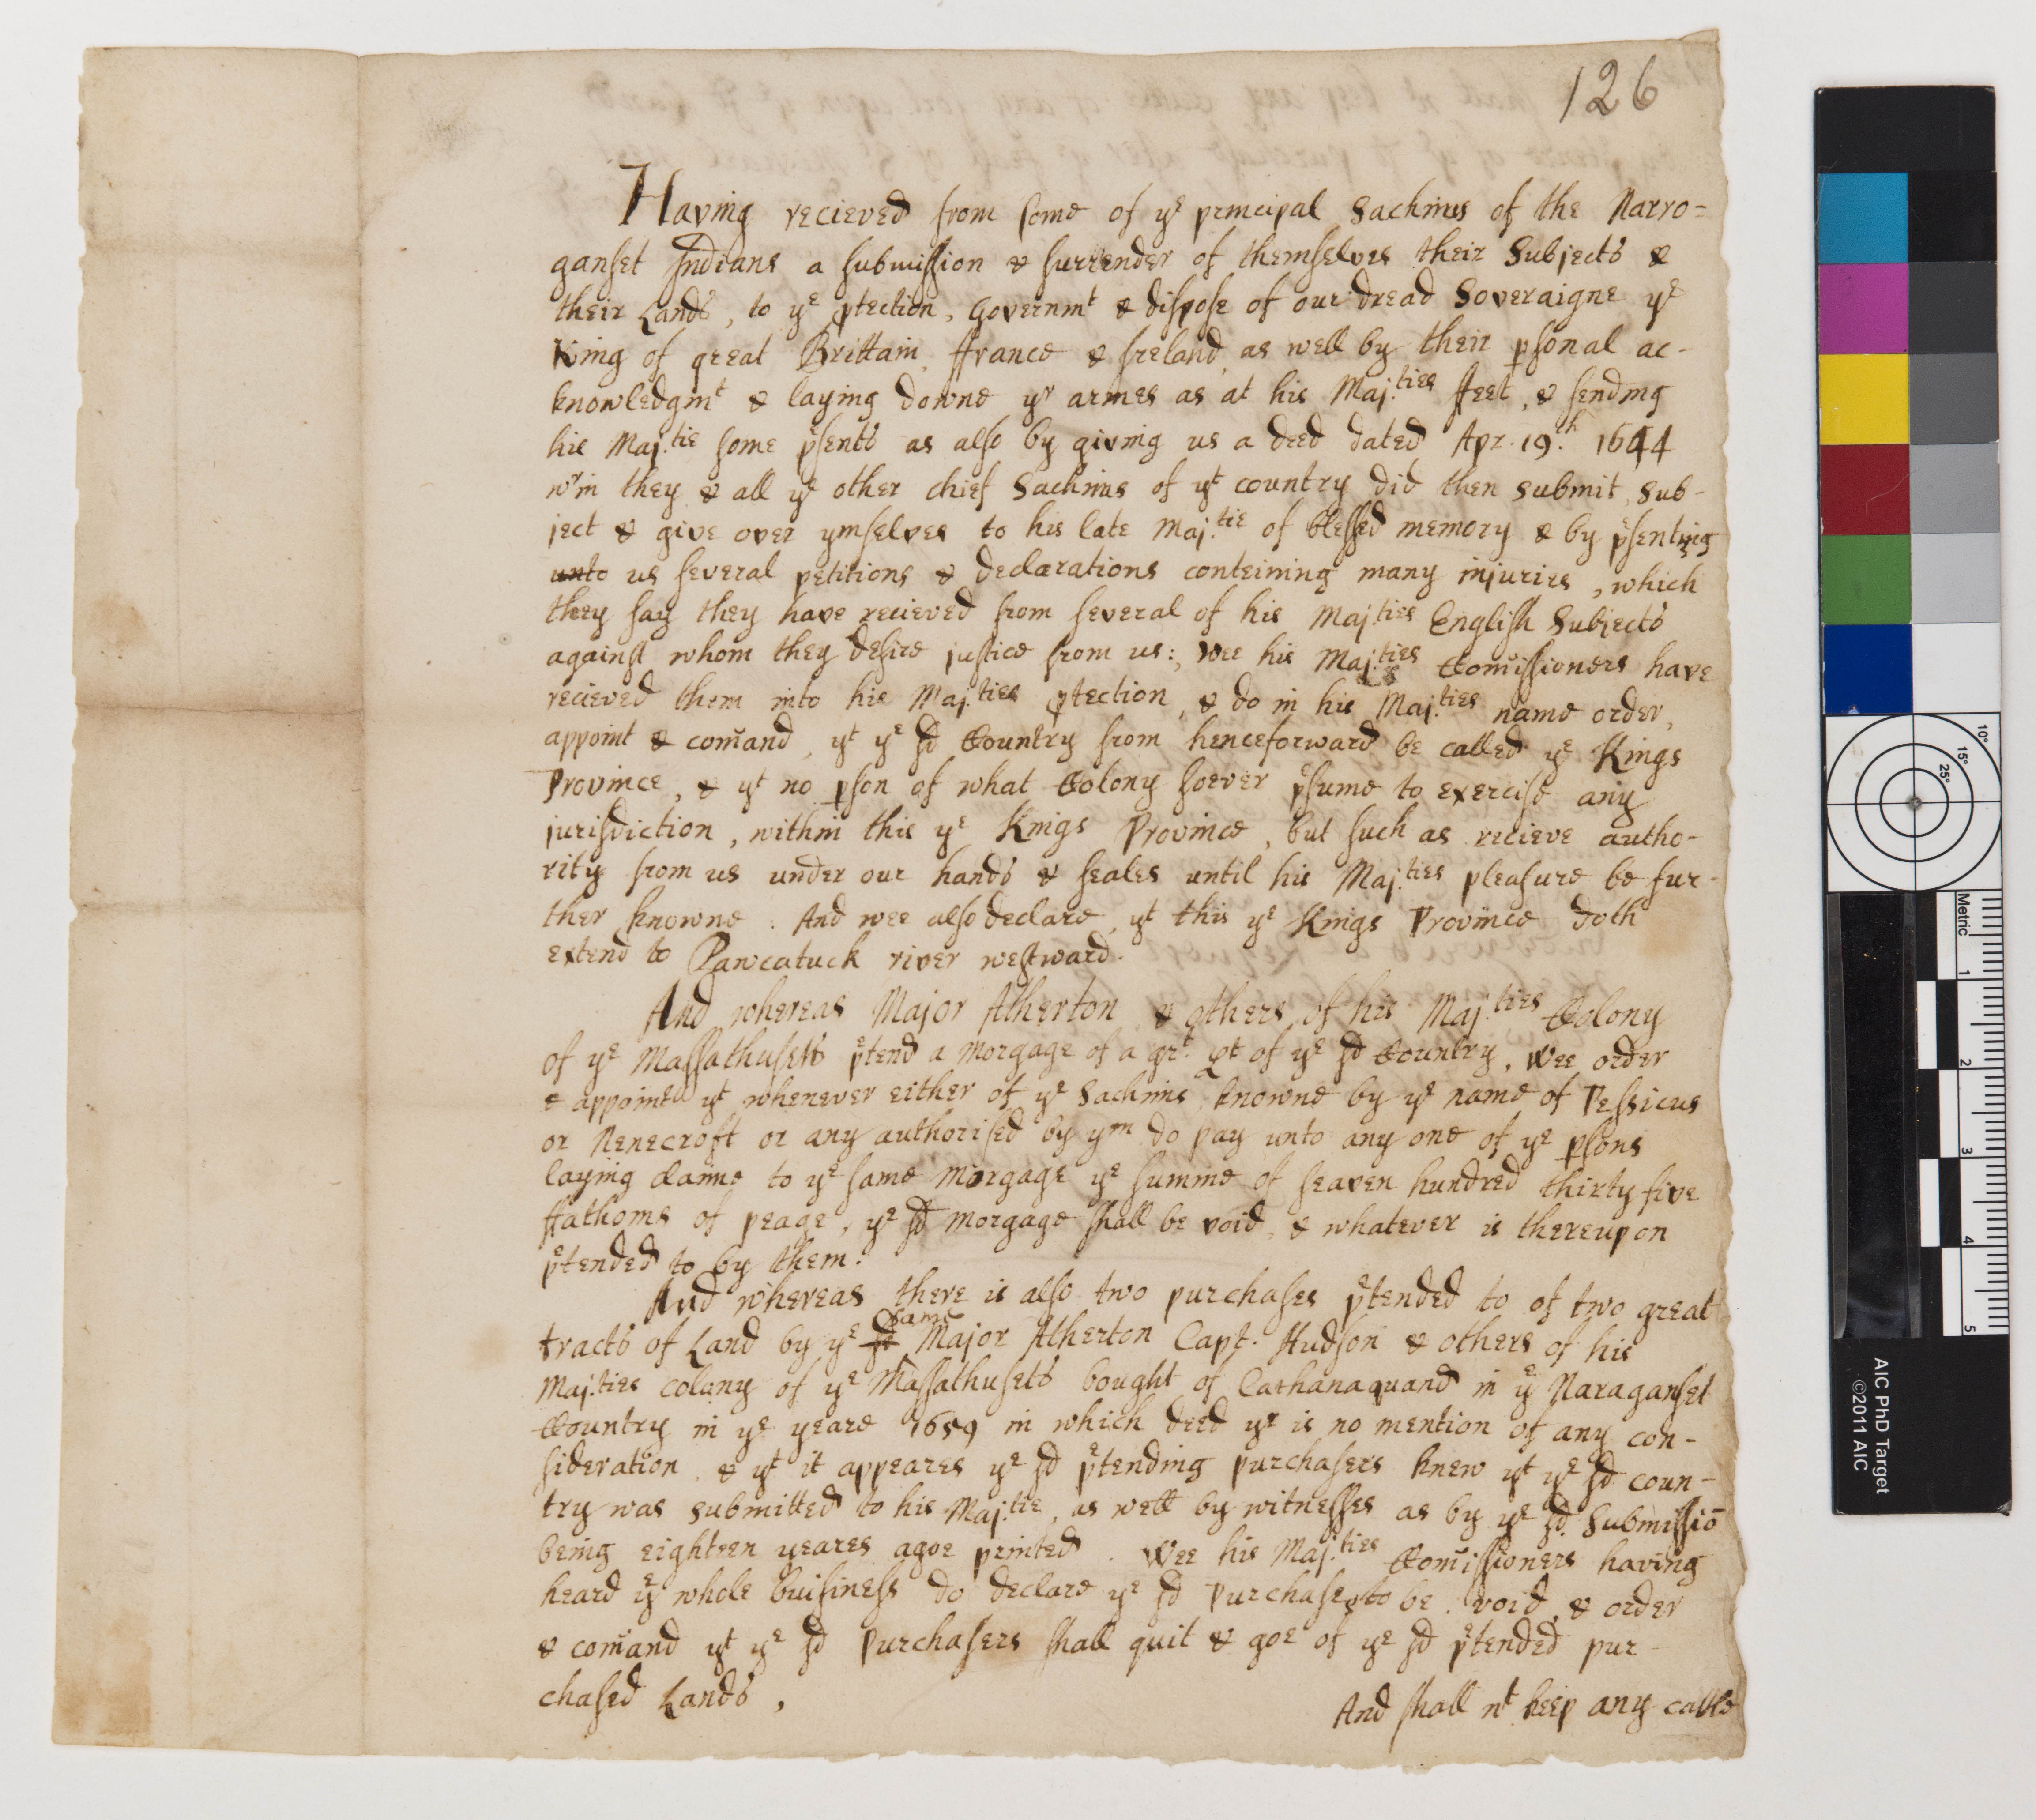 126
Having recieved from some of ye principal Sachims of the Narro=
ganset Indians a submission & surrender of themselves their Subjects &
their Lands, to ye ptection, Governmt & dispose of our dread Soveraigne ye
King of great Brittain, ffrance & Ireland, as well by their psonal ac-
knowledgmt & laying downe yr armes as at his Maj.ties ffeet, & sending
his Maj.tie some psents as also by giving us a deed dated Apr. 19.th 1644
wrin they & all ye other chief Sachims of yt country did then submit, sub-
ject & give over ymselves to his late Maj.tie of blessed memory & by psenting
unto us several petitions & declarations conteining many injuries, which
they say they have recieved from several of his Maj.ties English Subjects
against whom they desire justice from us:, Wee his Maj.ties Comissioners have
recieved them into his Maj.ties ptection, & do in his Maj.ties name order,
appoint & comand, yt ye sd Country from henceforward be called ye Kings
Province, & yt no pson of what Colony soever psume to exercise any
jurisdiction, within this ye Kings Province, but such as recieve autho-
rity from us under our hands & seales until his Maj.ties pleasure be fur-
ther knowne. And wee also declare, yt this ye Kings Province doth
extend to Pawcatuck river westward.
And whereas Major Atherton & others of his Maj.ties Colony
of ye Massathusets ptend a Morgage of a grt. pt of ye sd Country, Wee order
& appoint yt whenever either of ye Sachims knowne by ye name of Pessicus
or Nenecroft or any authorised by ym do pay unto any one of ye psons
laying claime to ye same Morgage ye summe of seaven hundred thirty five
ffathoms of peage, ye sd Morgage shall be void, & whatever is thereupon
ptended to by them.
And whereas there is also two purchases ptended to of two great
tracts of Land by ye sd same Major Atherton Capt. Hudson & others of his
Maj.ties colony of ye Massathusets bought of Cathanaquand in ye Naraganset
Country in ye yeare 1659 in which deed yr is no mention of any con-
sideration, & yt it appeares ye sd ptending purchasers knew yt ye sd coun-
try was submitted to his Maj.tie, as well by witnesses as by ye sd. Submissiō
being eighteen yeares agoe printed. Wee his Maj.ties Comissioners having
heard ye whole buisiness do declare ye sd Purchases to be void, & order
& comand yt ye sd Purchasers shall quit & goe of ye sd ptended pur-
chased Lands,
And shall nt keep any cattle
AIC PhD Target
©2011 AIC
Metric
1
2
3
4
5
10°
15°
25°